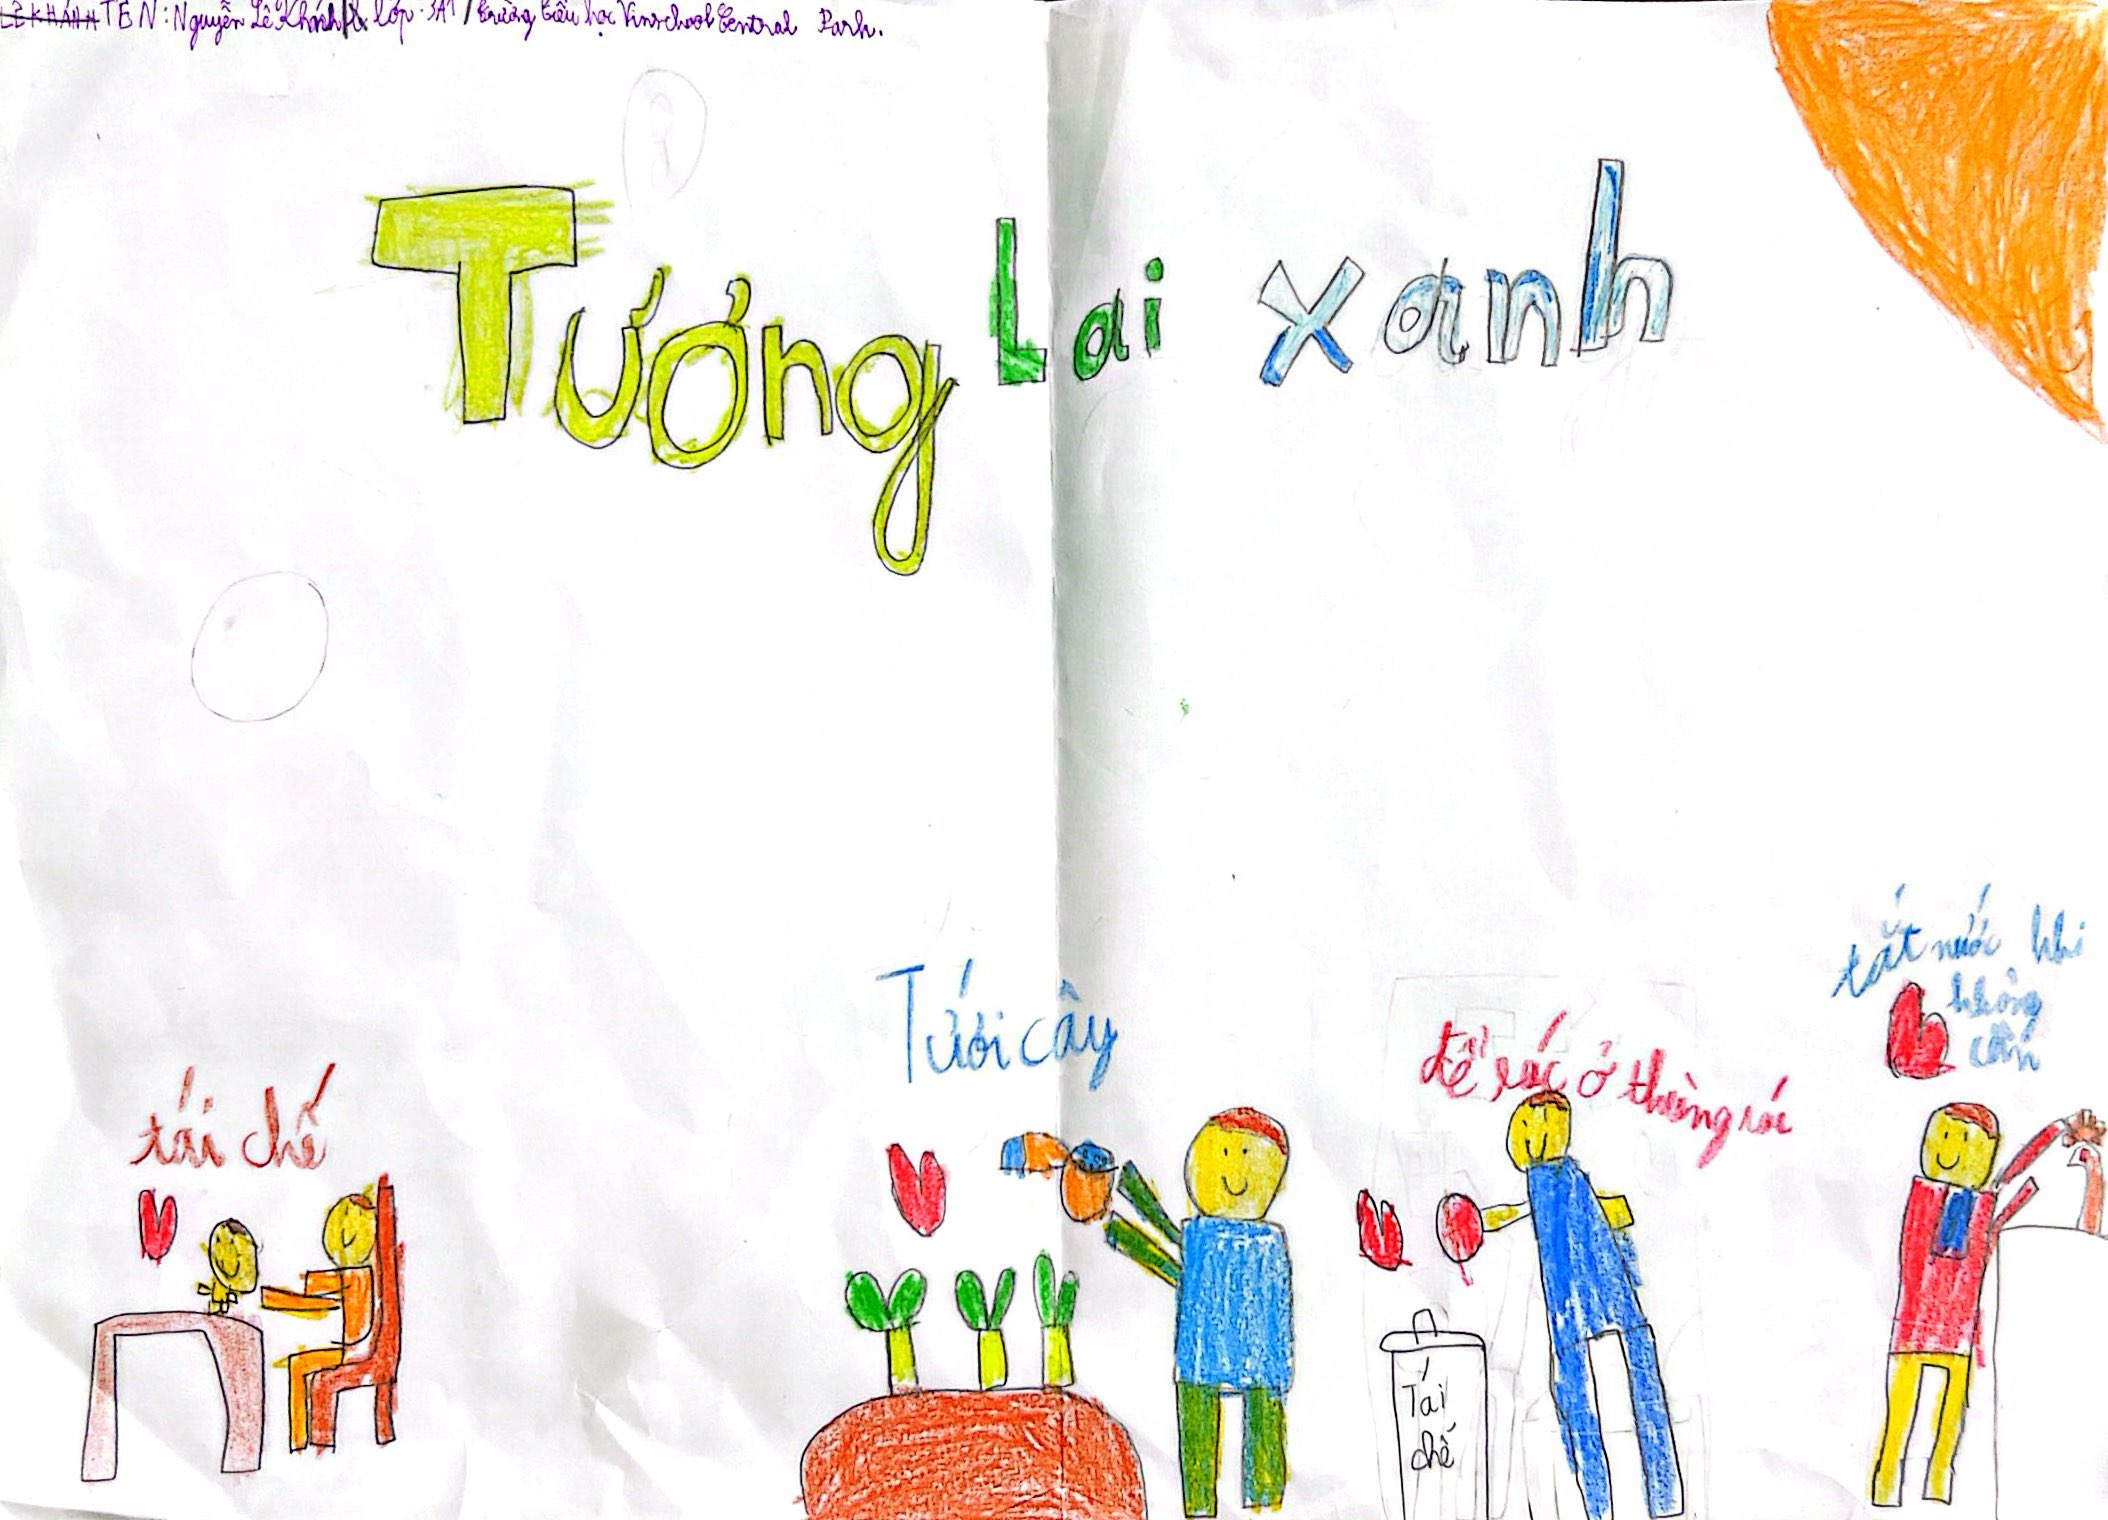 TÊN: Nguyễn Lê Khánh lớp: 3A1 / trường tiểu học Vinschool Central Park.
Tương Lai xanh
tắt nước khi
không
cần
Tưới cây
để rác ở thùng rác
tái chế
Tái
chế